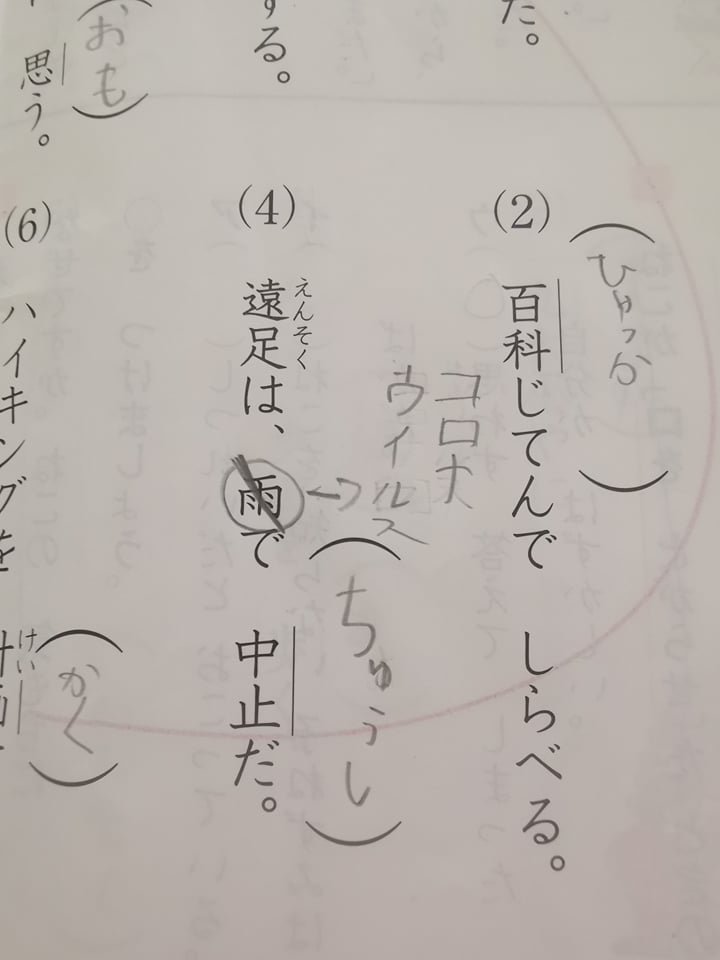 た。
(2)
百科じてんで しらべる。
ひゃっか
コロナ
ウイルス
する。
(4)
遠足は、雨で 中止だ。
えんそく
ちゅうし
思う。
おも
(6)
ハイキングを
けい
かく